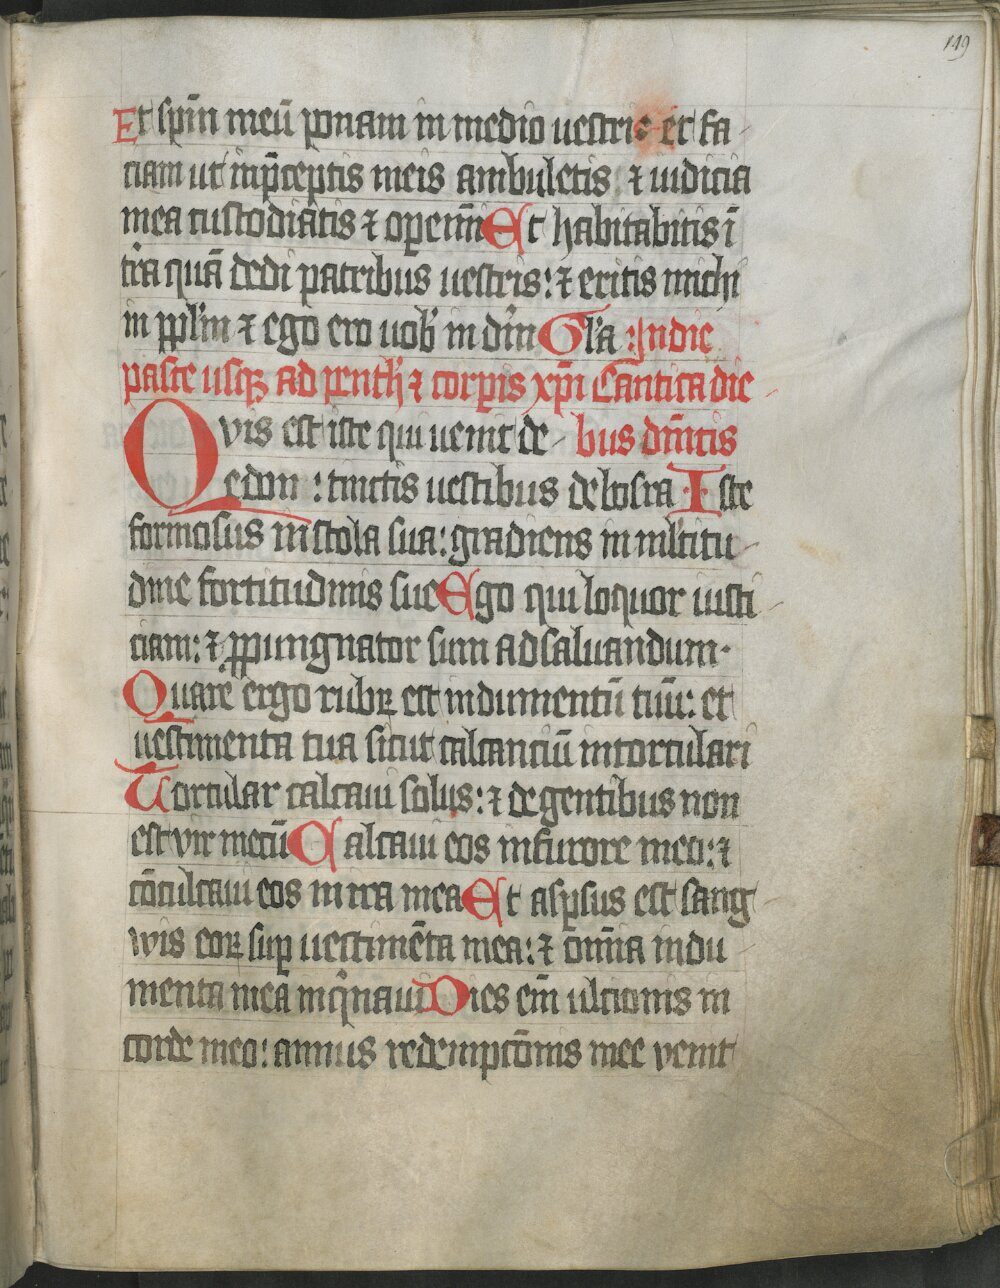 149
Et sp̄m meū ponam in medio uestri: et fa
ciam ut in p̄ceptis meis ambuletis ⁊ iudicia
mea custodiatis ⁊ operem̄ Et habitabitis ī
t̄ra quā dedi patribus uestris: ⁊ eritis michi
in pp̄lm ⁊ ego ero uob̓ in dm̄ Gl̓a : In die
pasce usq̨ ad penth̓ ⁊ corp̱is xp̄i Cantica die
Qvis est iste qui uenit de bus dn̄icis
edom : tinctis uestibus de bosra Iste
formosus in stola sua: gradiens in ml̓titu
dine fortitudinis sue Ego qui loquor iusti
ciam: ⁊ ꝓpungnator sum ad saluandum.
Quare ergo rubꝝ est indumentū tuū: et
uestimenta tua sicut calcanciū in torculari
Torcular calcaui solus: ⁊ de gentibus non
est vir mecū Calcaui eos in furore meo: ⁊
cōculcaui eos in ira mea Et asꝑsus est sang
wis eoꝝ suꝑ uestimēta mea: ⁊ om̄ia indu
menta mea inq̓naui Dies em̄ ulcionis in
corde meo: annus redempcōnis mee venit